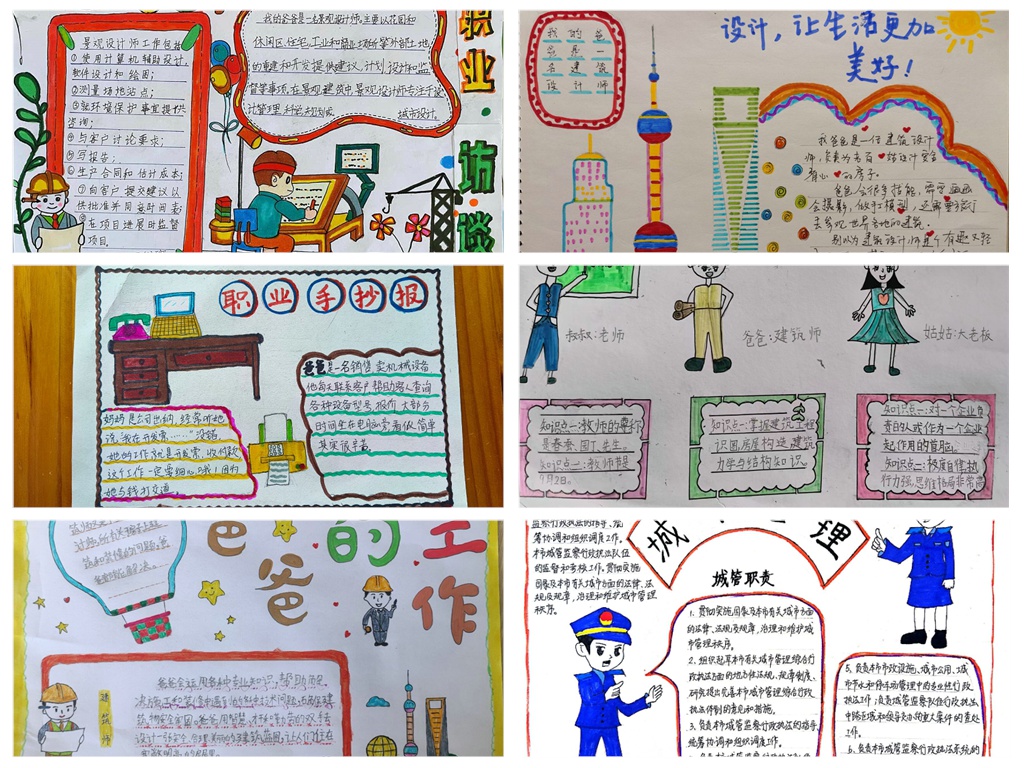 职业访谈
景观设计师工作包括
①使用计算机辅助设计，
软件设计和绘图；
②测量场地站点；
③就环境保护事宜提供
咨询；
④与客户讨论要求；
⑤写报告；
⑥生产合同和估计成本；
⑦向客户提交建议以
供批准并同意时间表
在项目进展时监督
项目。
我的爸爸是一名景观设计师，主要以花园和
休闲区、住宅、工业和商业场所等外部土地
的重建和开发提供建议、计划、设计和监
督等事项，在景观建筑中，景观设计师专注于设
计管理、科学规划或
城市设计。
设计，让生活更加
美好！
我的爸
爸是一
名建筑
设计师
我爸爸是一位建筑设计
师，负责为患者
爸爸会很多技能，需要画画
会摄影，做手工模型，还需要旅行
去发现世界各地的建筑。
别以为建筑设计师是个有趣又轻
职业手抄报
妈妈是公司出纳，经常听她
说，我在开发票……”没错，
她的工作就是开发票，收付款
这个工作一定要细心哦！因为
她与钱打交道。
爸爸是一名销售，卖机械设备
他每天联系客户，帮助客人查询
各种设备型号，报价，大部分
时间坐在电脑旁，看似简单
其实很辛苦。
叔叔：老师
爸爸：建筑师
姑姑：大老板
知识点一：教师的别称
是春蚕、园丁、先生。
知识点二：教师节是
9月2日。
知识点一：掌握建筑工程
识图，房屋构造，建筑
力学与结构知识。
知识点一：对一个企业负
责的人或作为一个企业
起作用的首脑。
知识点二：极度自律，执
行力强，思维格局非常高
爸爸的工作
建筑师
爸爸会运用各种专业知识，帮助历史
设计一张安全、合理、美丽的建筑蓝图，让人们住在
监察行政执法的指导、统
筹协调和组织调度工作。
本市城管监察行政执法队伍
的监督和考核工作。贯彻实施
国家及本市有关城市方面的法律、法
规及规章，治理和维护城市管理
秩序。
城
理
城管职责
1、贯彻实施国家及本市有关城市方面
的法律、法规及规章，治理和维护城
市管理秩序。
2、组织起草本市有关城市管理综合行
政执法方面的地方性法规、规章制度、
研究提出完善本市城市管理综合行政
执法体制的意见和措施。
3、负责本市城管监察行政执法的指导、
统筹协调和组织调度工作。
5、负责本市市政设施、城市公用、城
市节水和停车场管理中的专业性行政
执法工作；负责城管监察队伍行政执法
中跨区域和领导交办的重大案件的查处
工作。
6、负责本市城管监察行政执法系统的